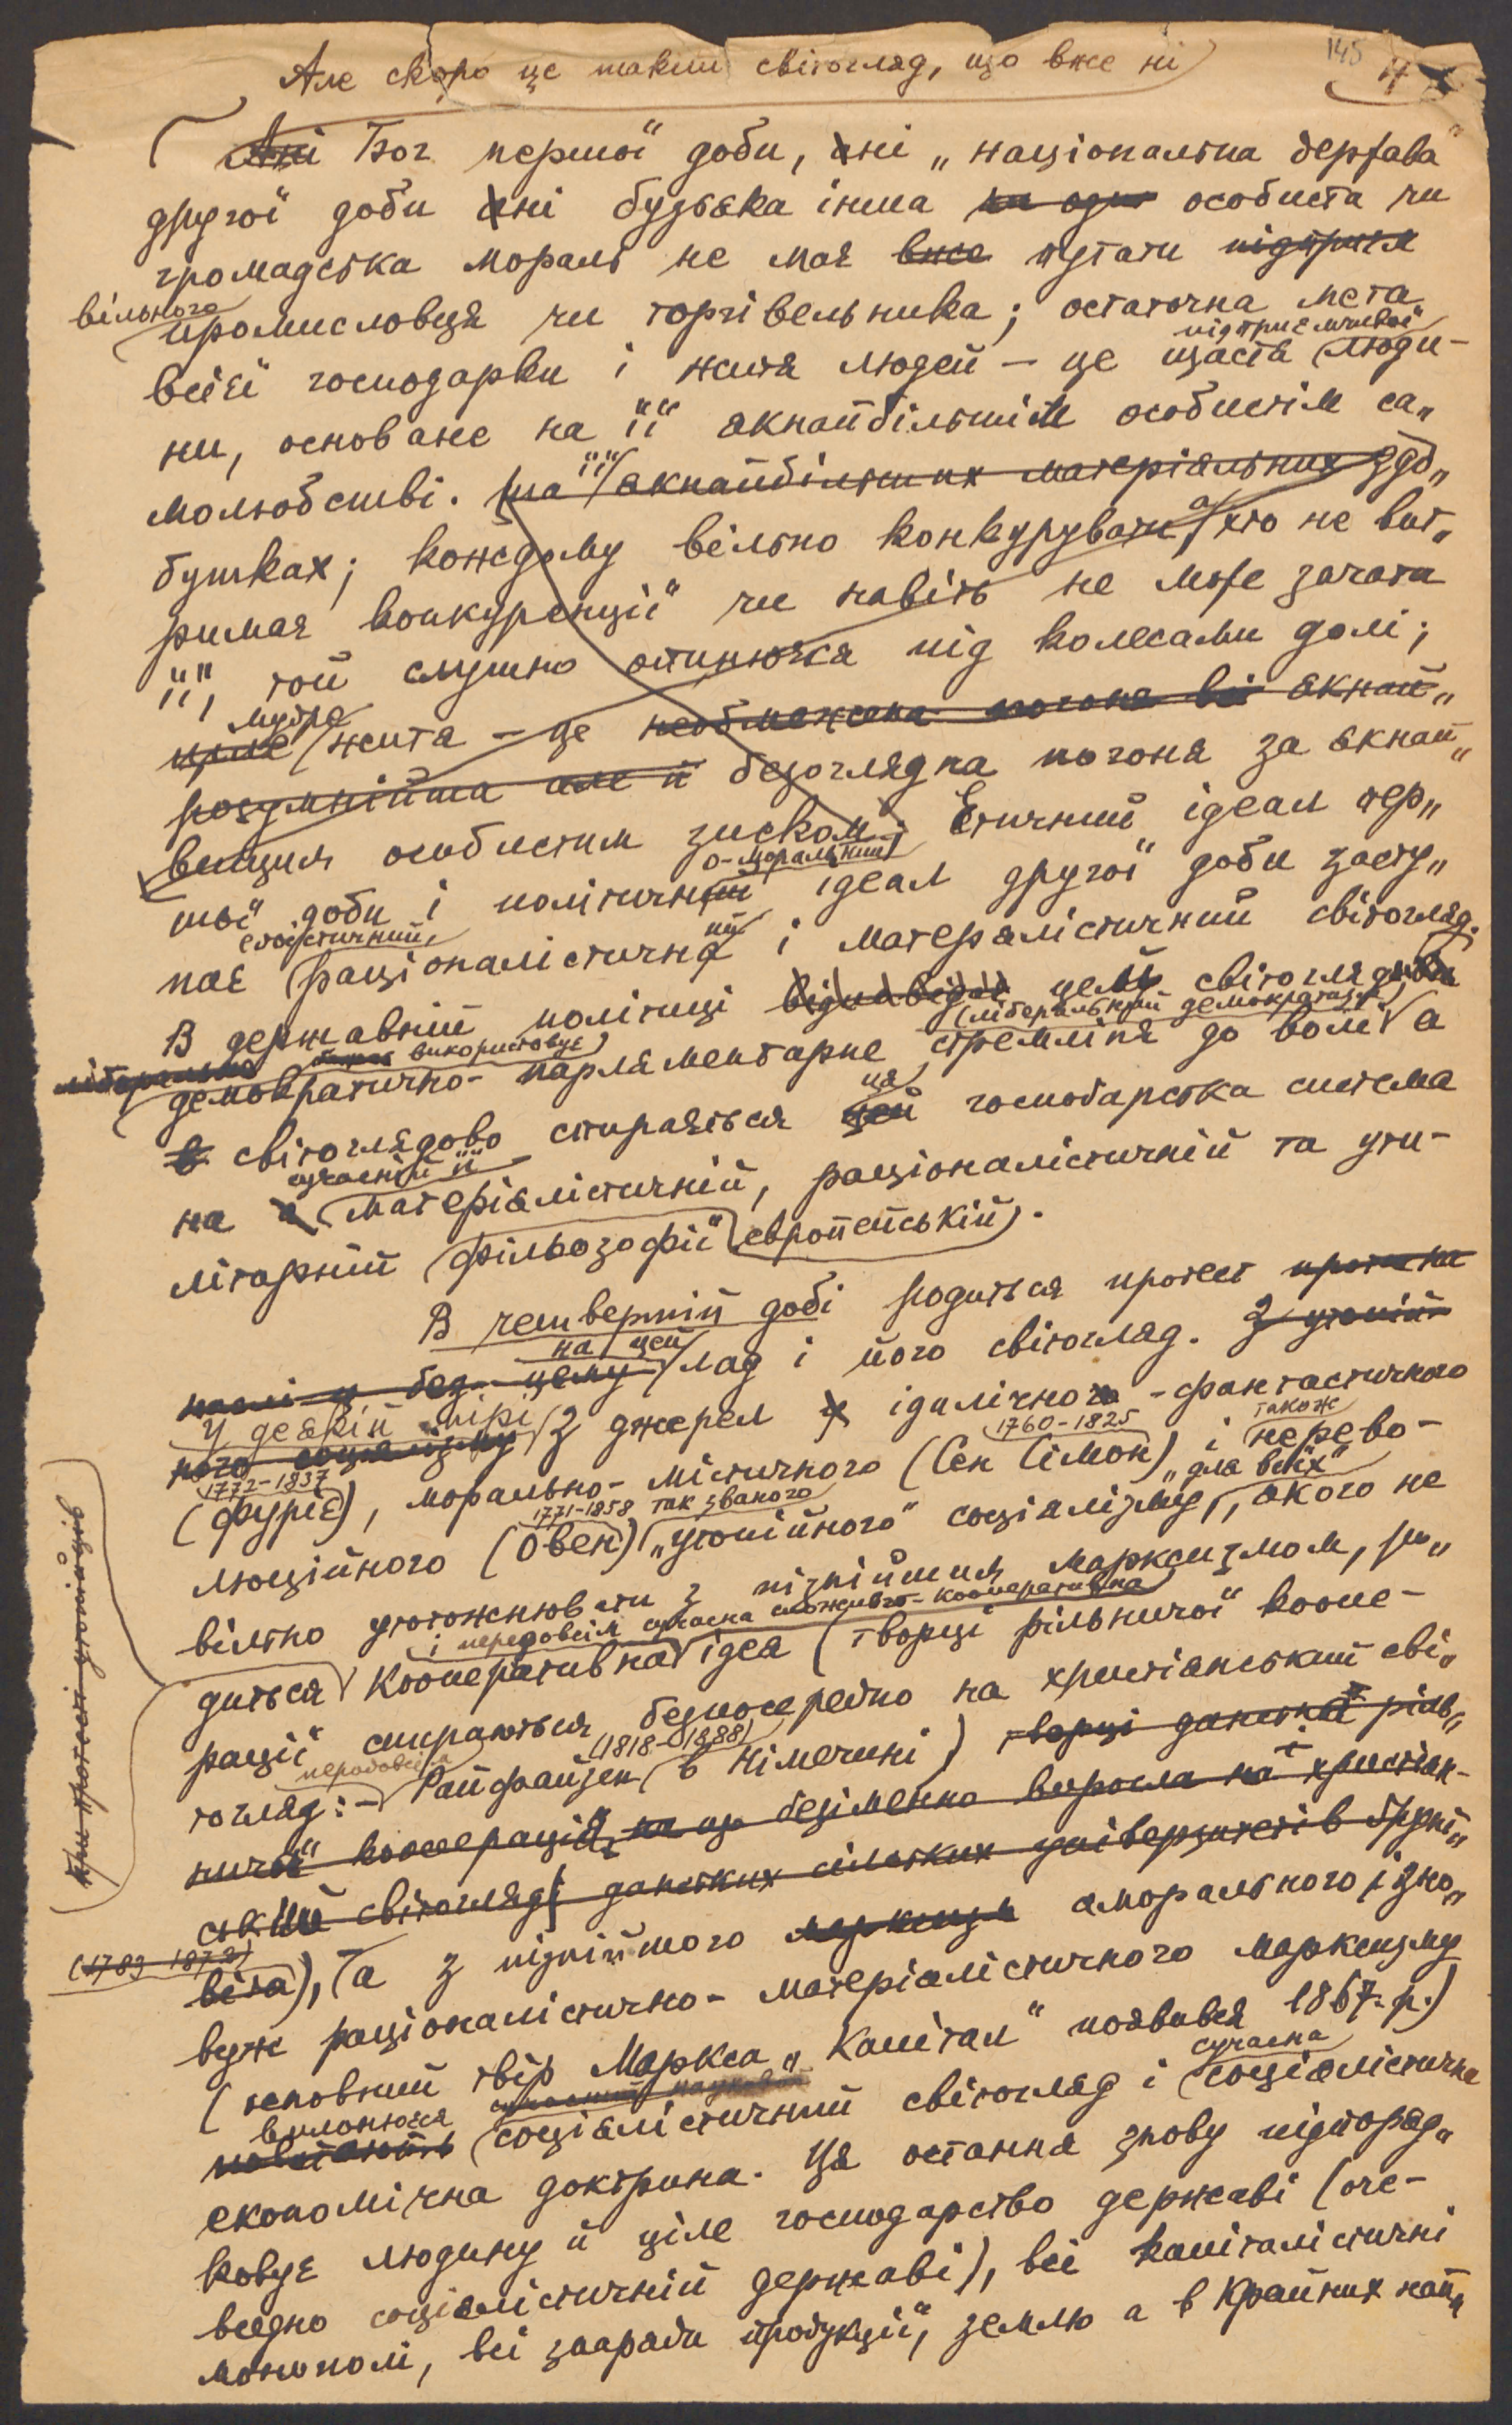 Але скоро це такий світогляд, що вже ні
145
4
Ані Бог першої доби, ані „національна держава"
другої доби ані будьяка інша ни одна особиста чи
громадська мораль не має вже путати підприєм
вільного
промисловця чи торгівельника; остаточна мета
підприємчивої
всієї господарки і життя людей — це щастя люди-
ни, основане на її якнайбільшім особистім са„
молюбстві. на її якнайбільших матеріяльних здо„
бутках; кождому вільно конкурувати, а хто не вит„
римає конкуренції чи навіть не може зачати
її, той слушно опинюєся під колесами долі;
мудре
життя — це необмежена погоня якнай„
розумнійша але й безоглядна погоня за якнай„
вищим особистим зиском. Етичний ідеал пер„
о-моральний
шої доби і політичний ідеал другої доби засту„
егоїстичний
пає раціоналістичний і матеріялістичний світогляд.
В державній політиці відповідає цему світоглядови
(ліберальний демократизм)
використовує
ліберально
демократично-парляментарне стремліня до волі а
в світоглядово стирається ця господарська система
сучасній її
на матеріялістичній, раціоналістичній та ути-
літарній фільозофії європейській.
В четвертій добі родиться протест проти
на цей
цему лад і його світогляд. З утопій-
У деякій мірі
ного соціялізму З джерел ідилічно - фантастичного
1772-1837
1760-1825
також
(Фуріє), морально-містичного (Сен Сімон) і нерево-
1771-1858 так званого
„для всіх"
люційного (Овен) „утопійного" соціялізму, якого не
вільно утотожнювати з пізнійшим марксизмом, ро„
і передовсім сучасна споживчо-кооперативна
диться кооперативна ідея (творці рільничої коопе-
рації спираються безпосередно на християнський сві„
передовсім
(1818-1888)
тогляд: - Райфайзен в Німеччині) творці данської ріль„
ничої кооперації безіменно виросла на християн-
ський світогляді данських сільських університетів Ґрунт„
(1783 1872)
віґа), а з пізнійшого марксизм аморального, ізно„
ву ж раціоналістично-матеріялістичного марксизму
(основний твір Маркса „Капітал" появився 1867. р.)
сучасна
вилонюєся
соціялістичний світогляд і соціялістична
економічна доктрина. Ця остання знову підпоряд„
ковує людину й ціле господарство державі (оче-
видно соціялістичній державі), всі капіталістичні
монополі, всі знаряди продукції, землю а в крайних нап„